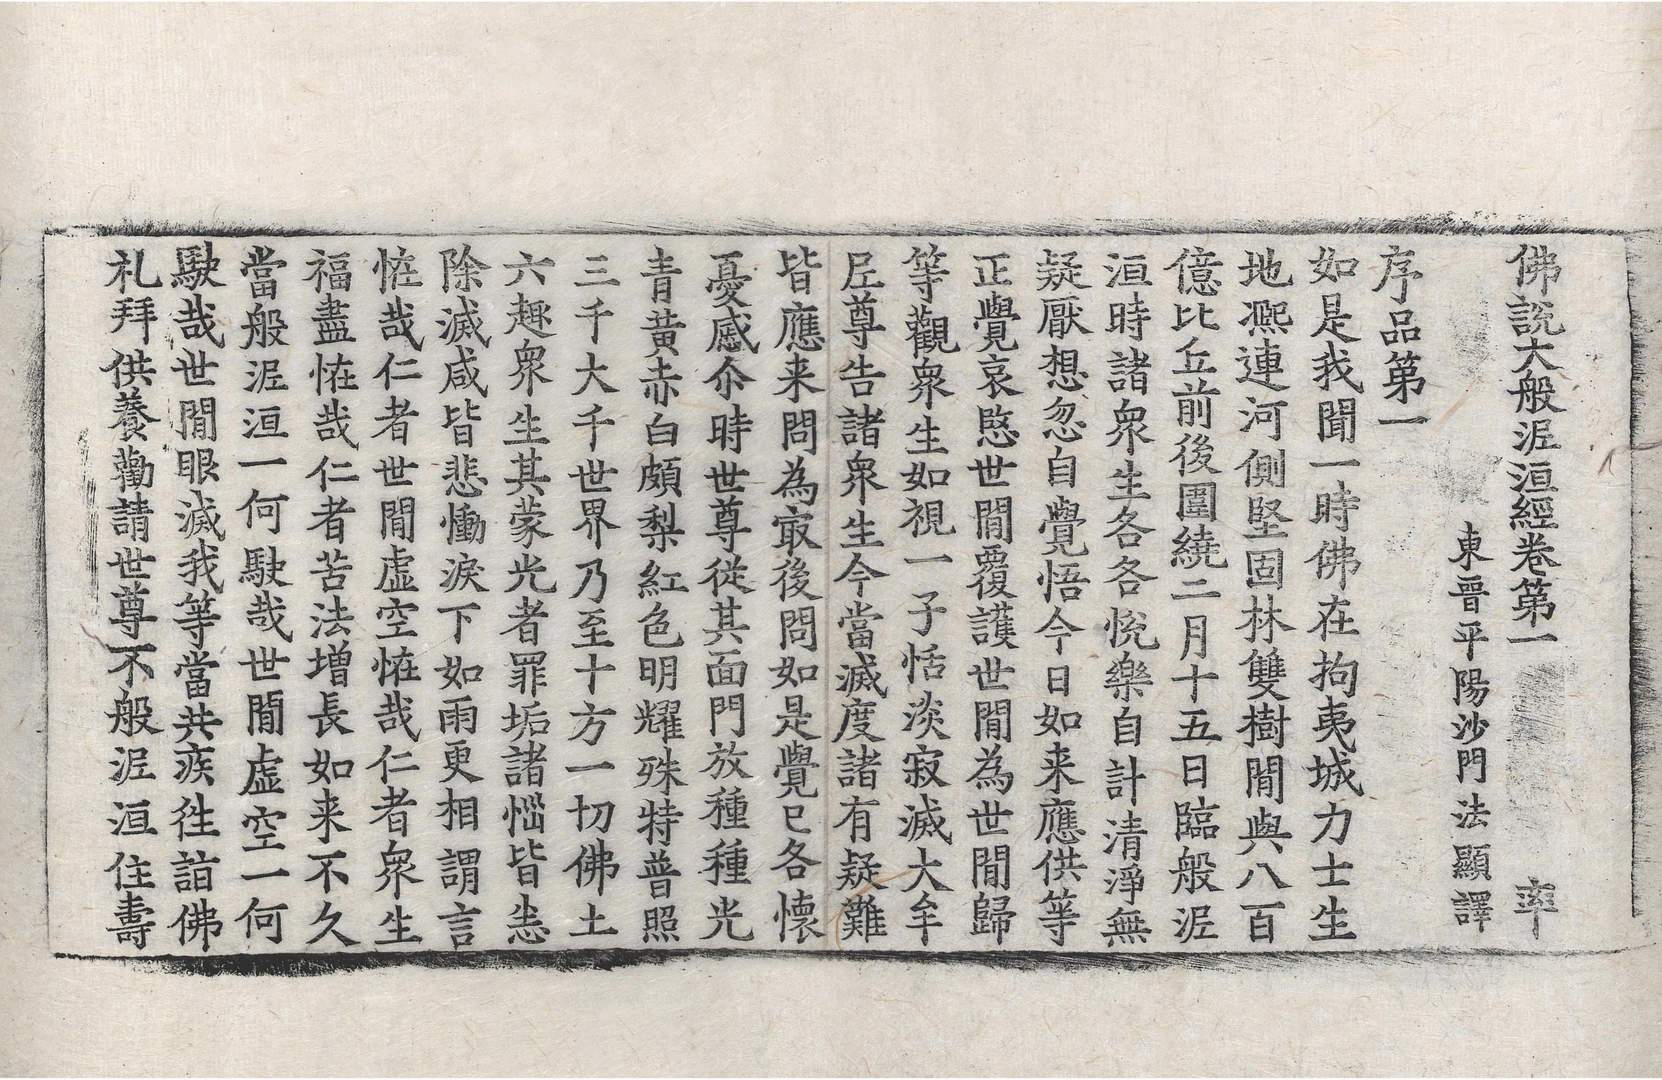 佛說大般泥洹經卷第一 率
東晉平陽沙門法顯譯
序品第一
如是我聞一時佛在拘夷城力士生
地凞連河側堅固林雙樹閒與八百
億比丘前後圍繞二月十五日臨般泥
洹時諸衆生各各悅樂自計清淨無
疑厭想忽自覺悟今日如来應供等
正覺哀愍世閒覆護世閒為世閒歸
等觀衆生如視一子恬淡寂滅大牟
尼尊告諸衆生今當滅度諸有疑難
皆應来問為㝡後問如是覺已各懷
憂慼尒時世尊從其面門放種種光
青黃赤白頗梨紅色明耀殊特普照
三千大千世界乃至十方一切佛土
六趣衆生其蒙光者罪垢諸惱皆悉
除滅咸皆悲慟淚下如雨更相謂言
恠哉仁者世閒虛空恠哉仁者衆生
福盡恠哉仁者苦法增長如来不久
當般泥洹一何駛哉世閒虛空一何
駛哉世閒眼滅我等當共疾徃詣佛
礼拜供養勸請世尊不般泥洹住壽